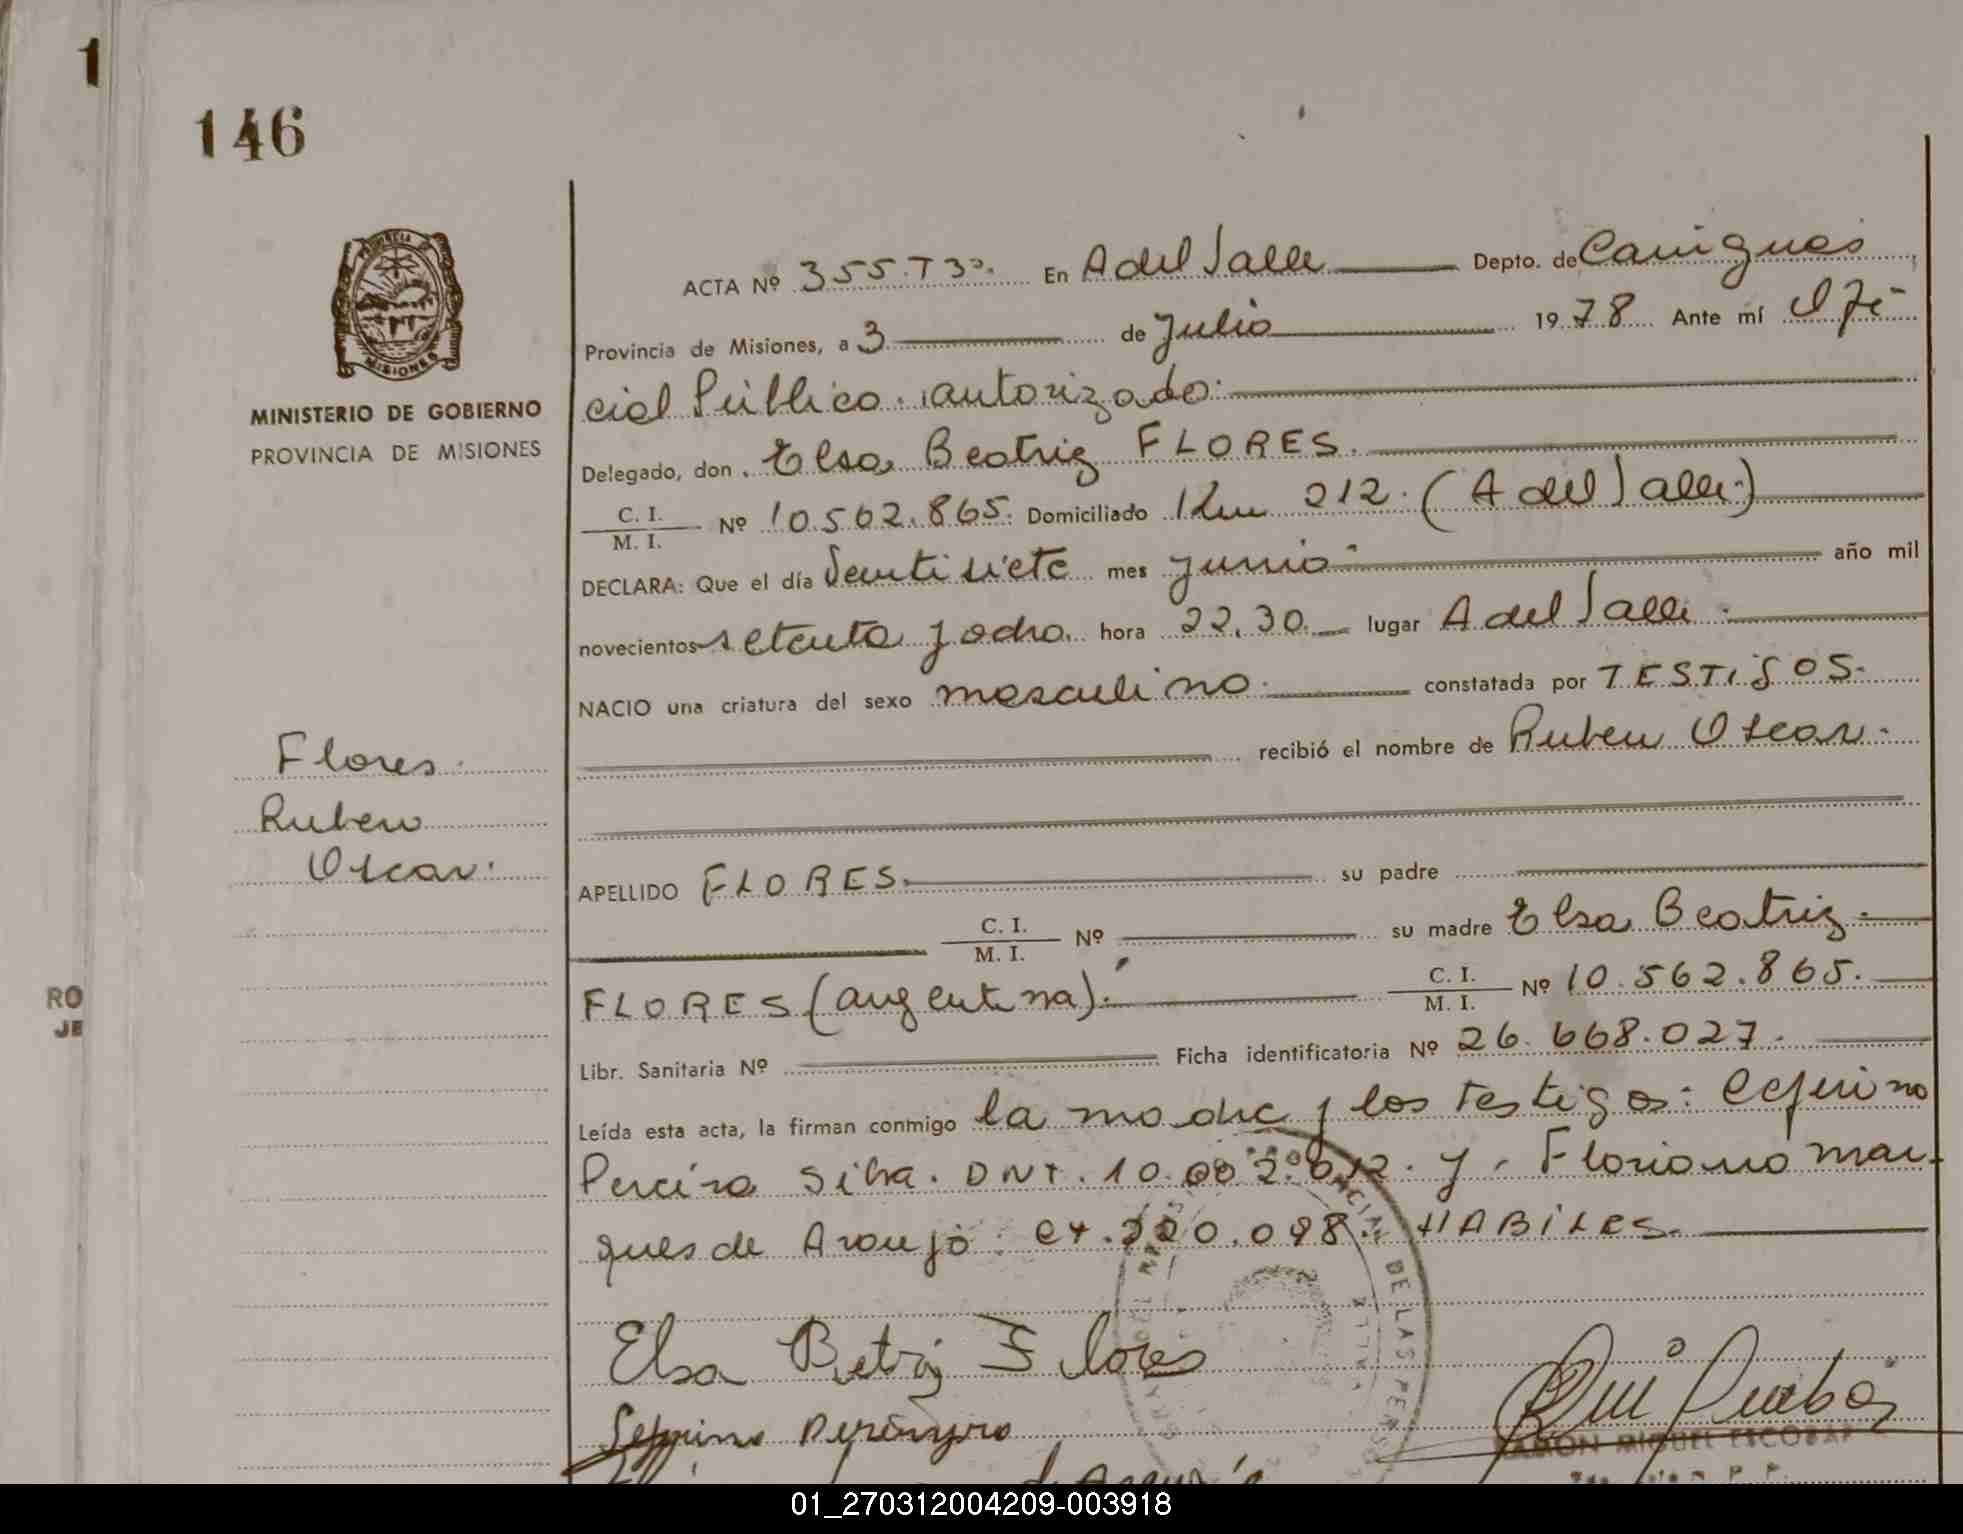 1
146
PROVINCIA DE
MISIONES
MINISTERIO DE GOBIERNO
PROVINCIA DE MISIONES
ACTA Nº 355.Tº3º. En A del Valle Depto. de Cainguas
Provincia de Misiones, a 3 de Julio 1978 Ante mí Ofi-
cial Público autorizado:
Delegado, don Elsa Beatriz FLORES.
C. I.
M. I. Nº 10.562.865. Domiciliado Km 212. (A del Valle.)
DECLARA: Que el día Veintisiete mes junio año mil
novecientos setenta y ocho hora 22,30 lugar A del Valle.
NACIO una criatura del sexo masculino. constatada por TESTIGOS.
recibió el nombre de Ruben Oscar.
Flores.
Ruben
Oscar.
APELLIDO FLORES. su padre
C. I.
M. I. Nº su madre Elsa Beatriz
FLORES (argentina). C. I.
M. I. Nº 10.562.865.
Libr. Sanitaria Nº Ficha identificatoria Nº 26.668.027.
Leída esta acta, la firman conmigo la madre y los testigos: Ceferino
Pereira Silva. DNI. 10.002.012. y Floriano Mar-
ques de Araujo: CI. 220.098. HABILES.
Elsa Betriz Flores
RAMON MIGUEL ESCOBAR
DE LAS PERSO
RO
JE
01_270312004209-003918